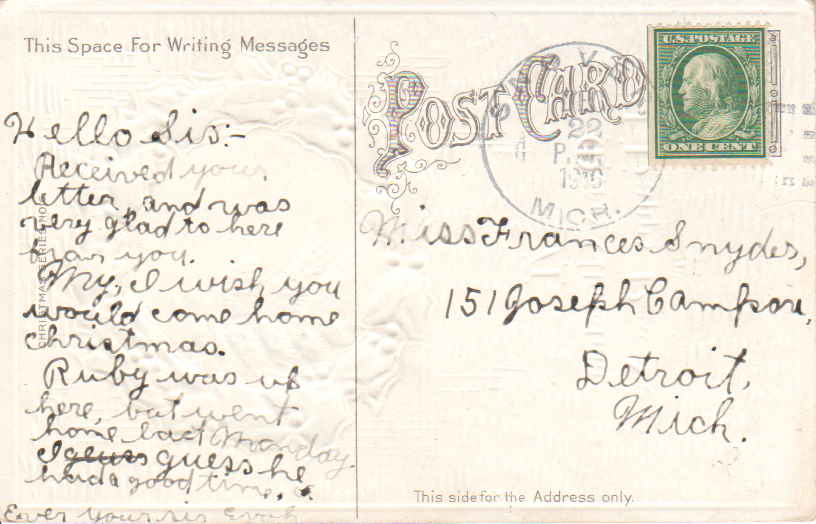 This Space For Writing Messages
Hello Sis:-
Received your
letter, and was
very glad to here
from you.
My, I wish you
would come home
christmas.
Ruby was up
here, but went
home last Monday.
I guess he
had a good time.
Ever your sis
CHRISTMAS SERIES NO.
POST CARD
U.S. POSTAGE
ONE CENT
22
P.M.
MICH.
Miss Frances Snyder,
151 Joseph Campau,
Detroit,
Mich.
This side for the Address only.